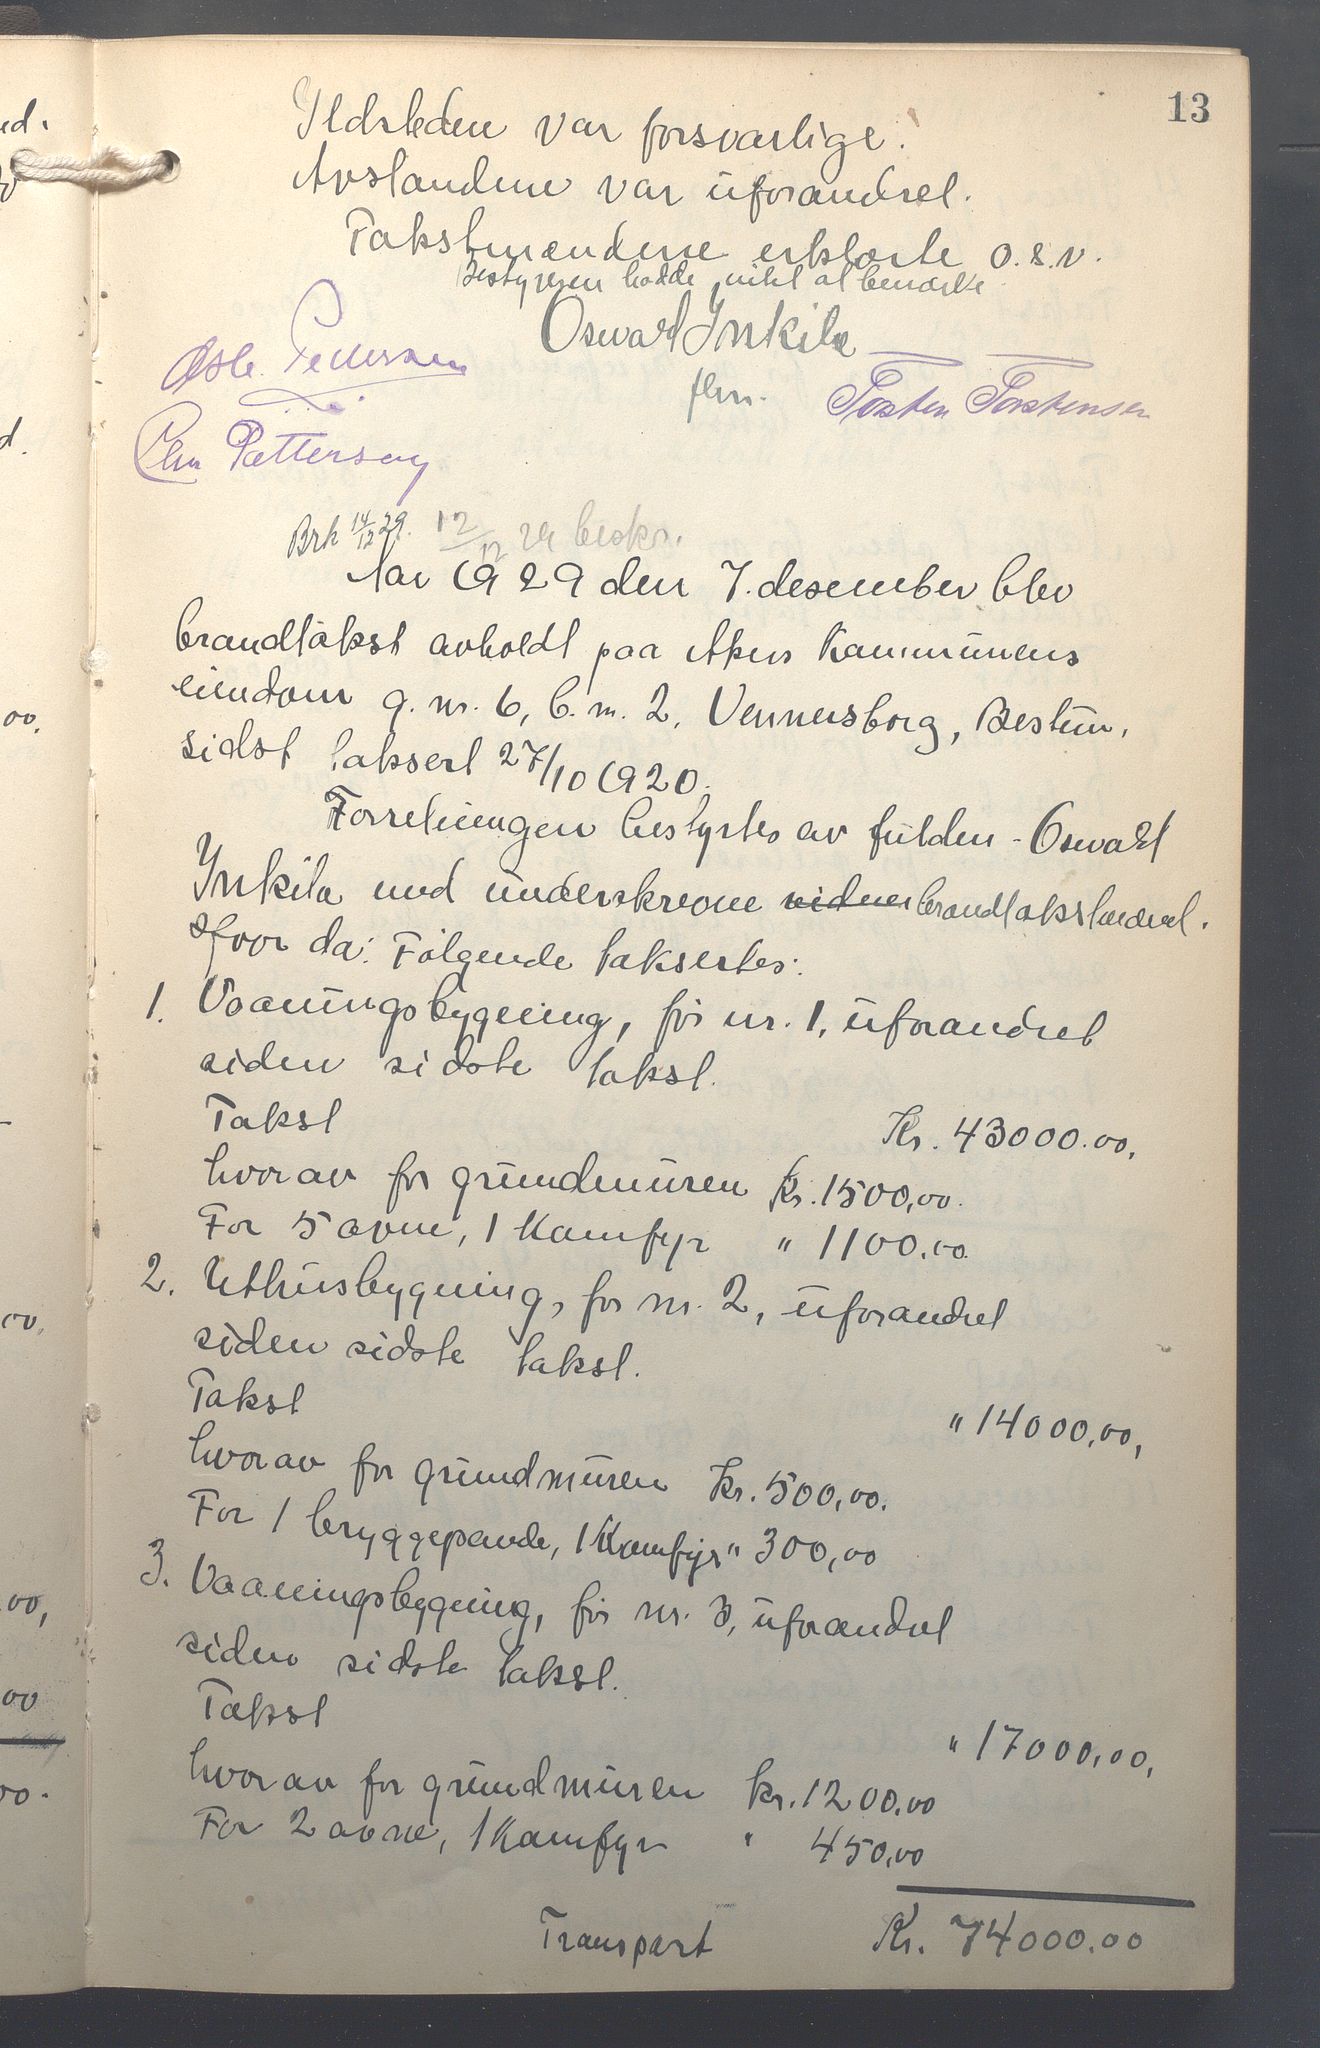 13
Ildsteden var forsvarlige.
Avstandene var uforandret.
Takstmændene erklærte o.s.v.
Bestyreren hadde intet at bemærke
Oswald Inkila
Asle Pettersen
flm.
Torsten Torstensen
Chr Pettersen
Brk 14/12 29. 12/12 29 beskr.
Aar 1929 den 7. desember blev
brandtakst avholdt paa Akers Kommunens
eiendom g. nr. 6, b. nr. 2, Vennersborg, Bestun,
sidst taksert 27/10 1920.
Forretningen bestyrtes av fuldm. Oswald
Inkila med underskrevne vidner brandtakstmænd.
Hvor da: Følgende taksertes:
1. Vaaningsbygning, før nr. 1, uforandret
siden sidste takst.
Takst Kr. 43000.00,
hvorav for grundmuren Kr. 1500,00.
For 5 ovne, 1 Komfyr " 1100.00
2. Uthusbygning, før nr. 2, uforandret
siden sidste takst.
Takst " 14000,00,
hvorav for grundmuren Kr. 500,00.
For 1 bryggepande, 1 Komfyr " 300,00
3. Vaaningsbygning, før nr. 3, uforandret
siden sidste takst.
Takst " 17000,00,
hvorav for grundmuren Kr. 1200,00
For 2 ovne, 1 Komfyr " 450,00
Transport Kr. 74000.00